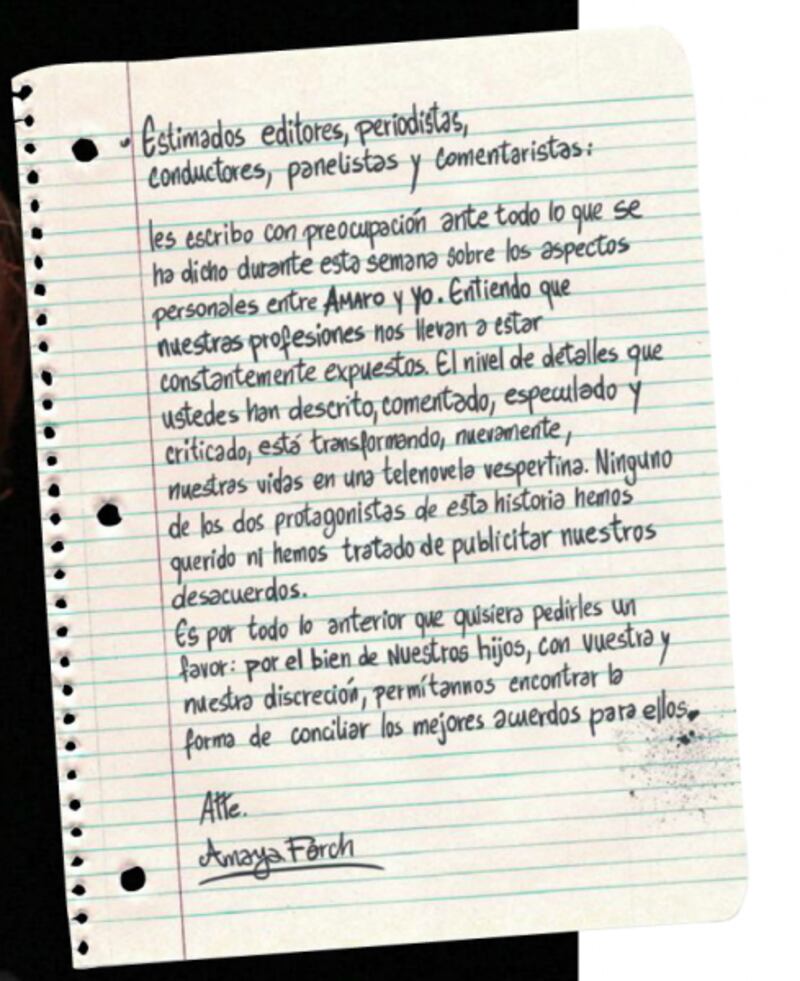 Estimados editores, periodistas,
conductores, panelistas y comentaristas:
les escribo con preocupación ante todo lo que se
ha dicho durante esta semana sobre los aspectos
personales entre AMARO y yo. Entiendo que
nuestras profesiones nos llevan a estar
constantemente expuestos. El nivel de detalles que
ustedes han descrito, comentado, especulado y
criticado, está transformando, nuevamente,
nuestras vidas en una telenovela vespertina. Ninguno
de los dos protagonistas de esta historia hemos
querido ni hemos tratado de publicitar nuestros
desacuerdos.
Es por todo lo anterior que quisiera pedirles un
favor: por el bien de Nuestros hijos, con vuestra y
nuestra discreción, permítannos encontrar la
forma de conciliar los mejores acuerdos para ellos.
Atte.
Amaya Forch